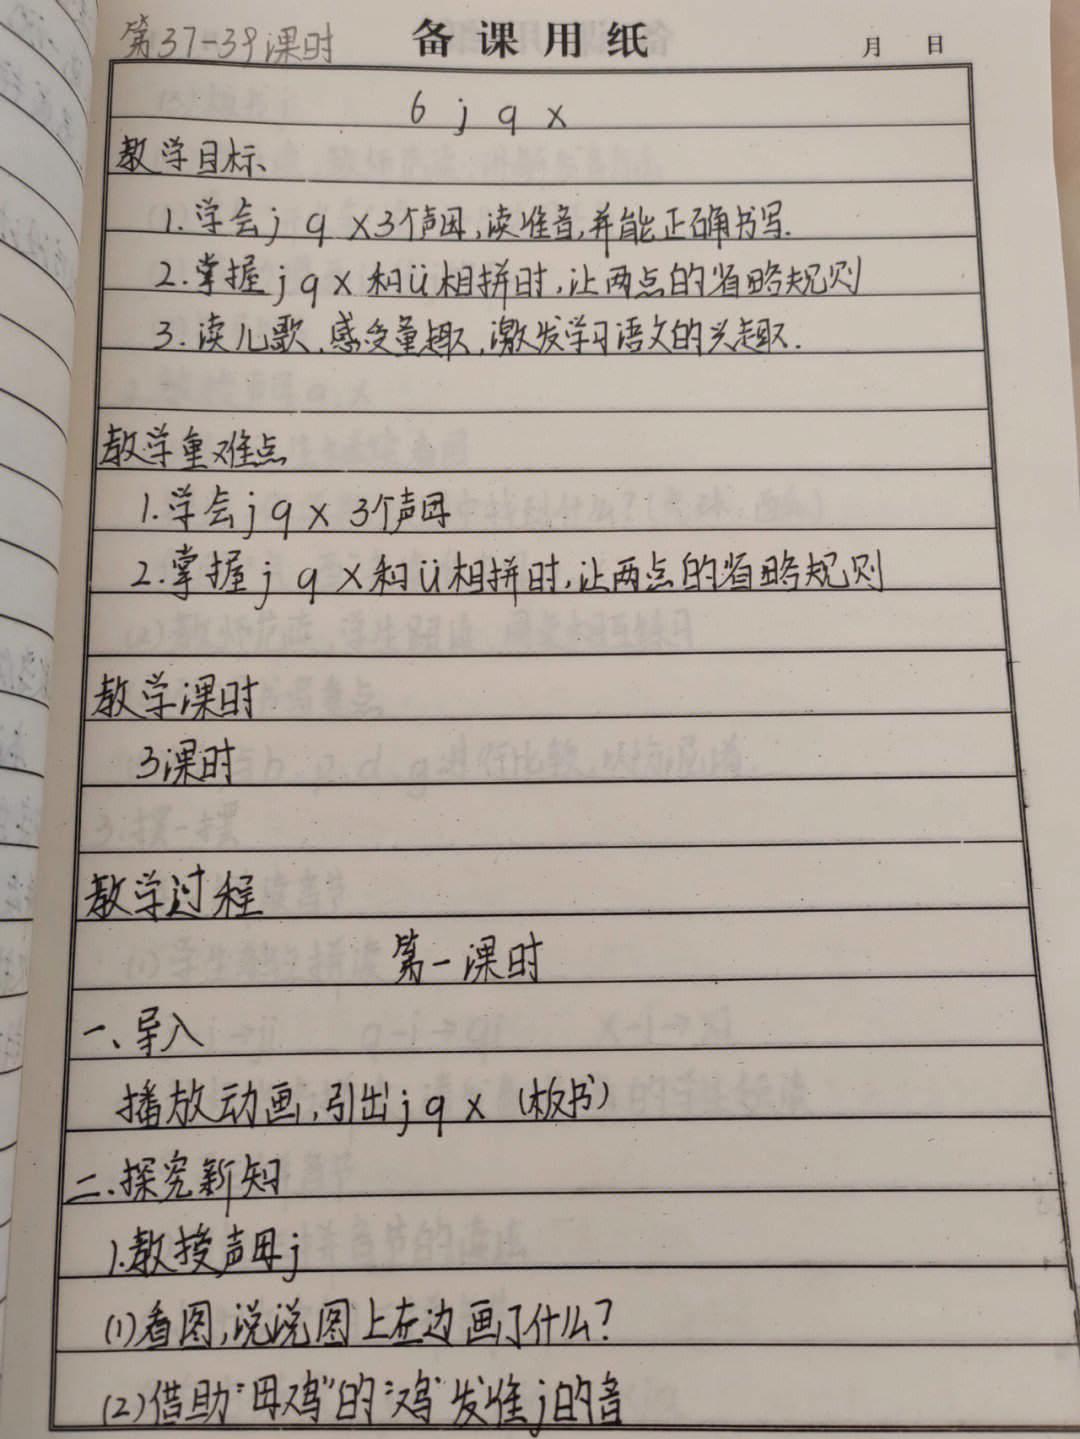 第37-39课时 备课用纸 月 日
6 j q x
教学目标
1.学会j q x 3个声母,读准音,并能正确书写.
2.掌握j q x 和ü相拼时,让两点的省略规则
3.读儿歌,感受童趣,激发学习语文的兴趣.
教学重难点
1.学会j q x 3个声母
2.掌握j q x和ü相拼时,让两点的省略规则
教学课时
3课时
教学过程
第一课时
一、导入
播放动画,引出j q x (板书)
二、探究新知
1.教授声母j
(1)看图,说说图上左边画了什么?
(2)借助“母鸡”的“鸡”发准j的音